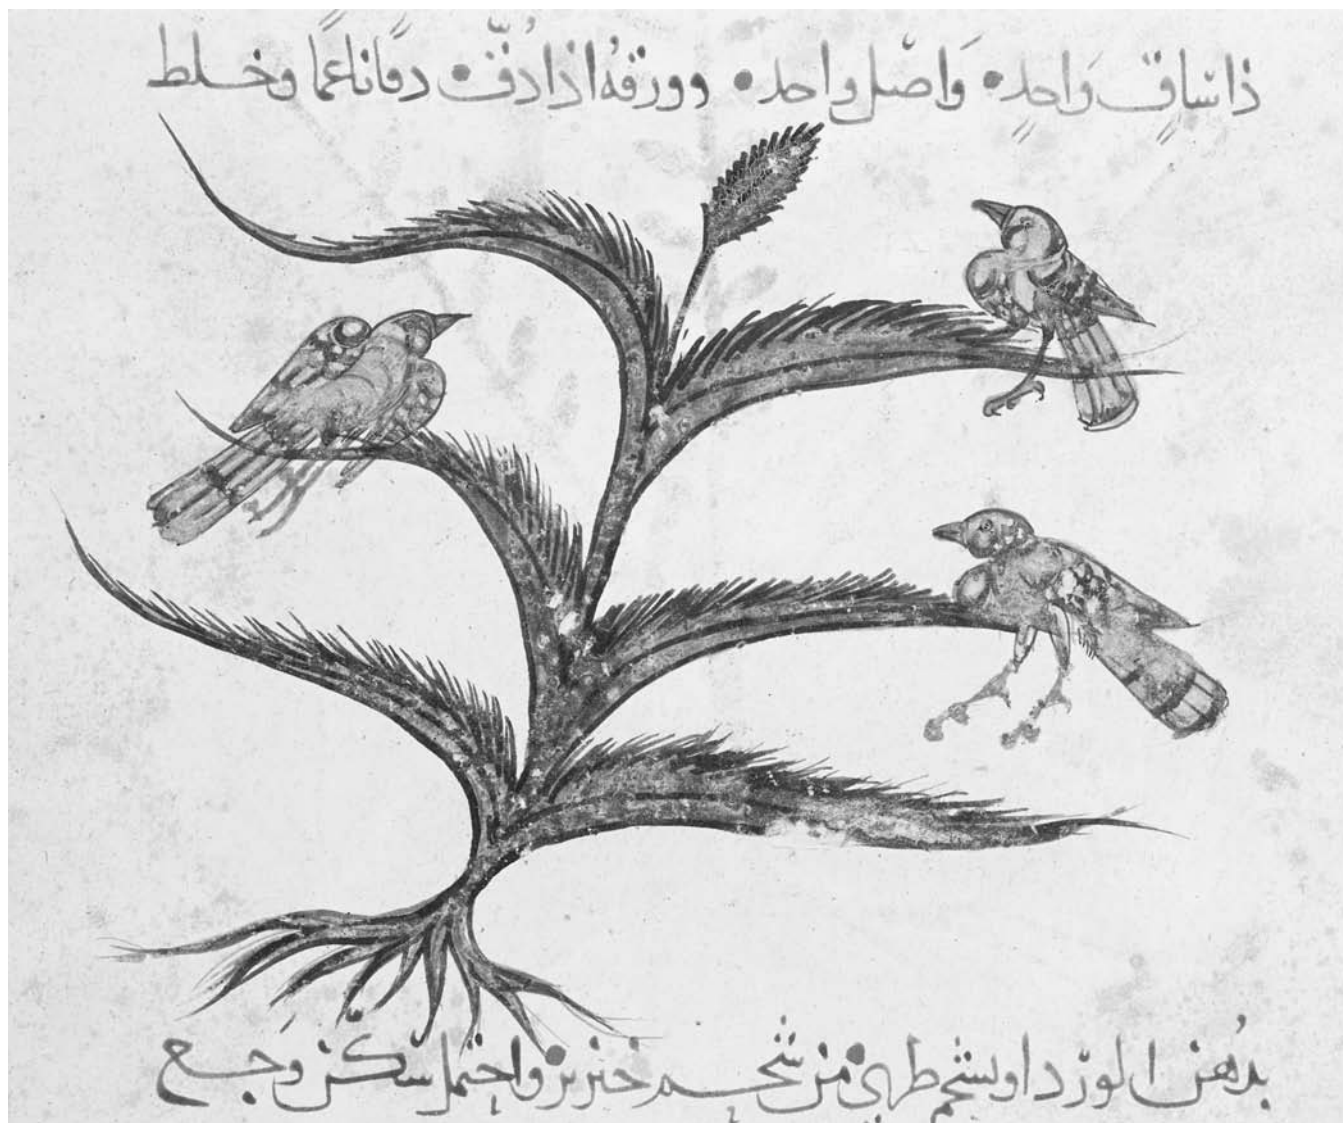 ذا ساق واحد • وَاصل واحد • وورقه اذا دُقّ • دقًا ناعمًا وخلط
بدُهن الورد او بشحم طري من شحم خنزير واحتمل سكّن وجع